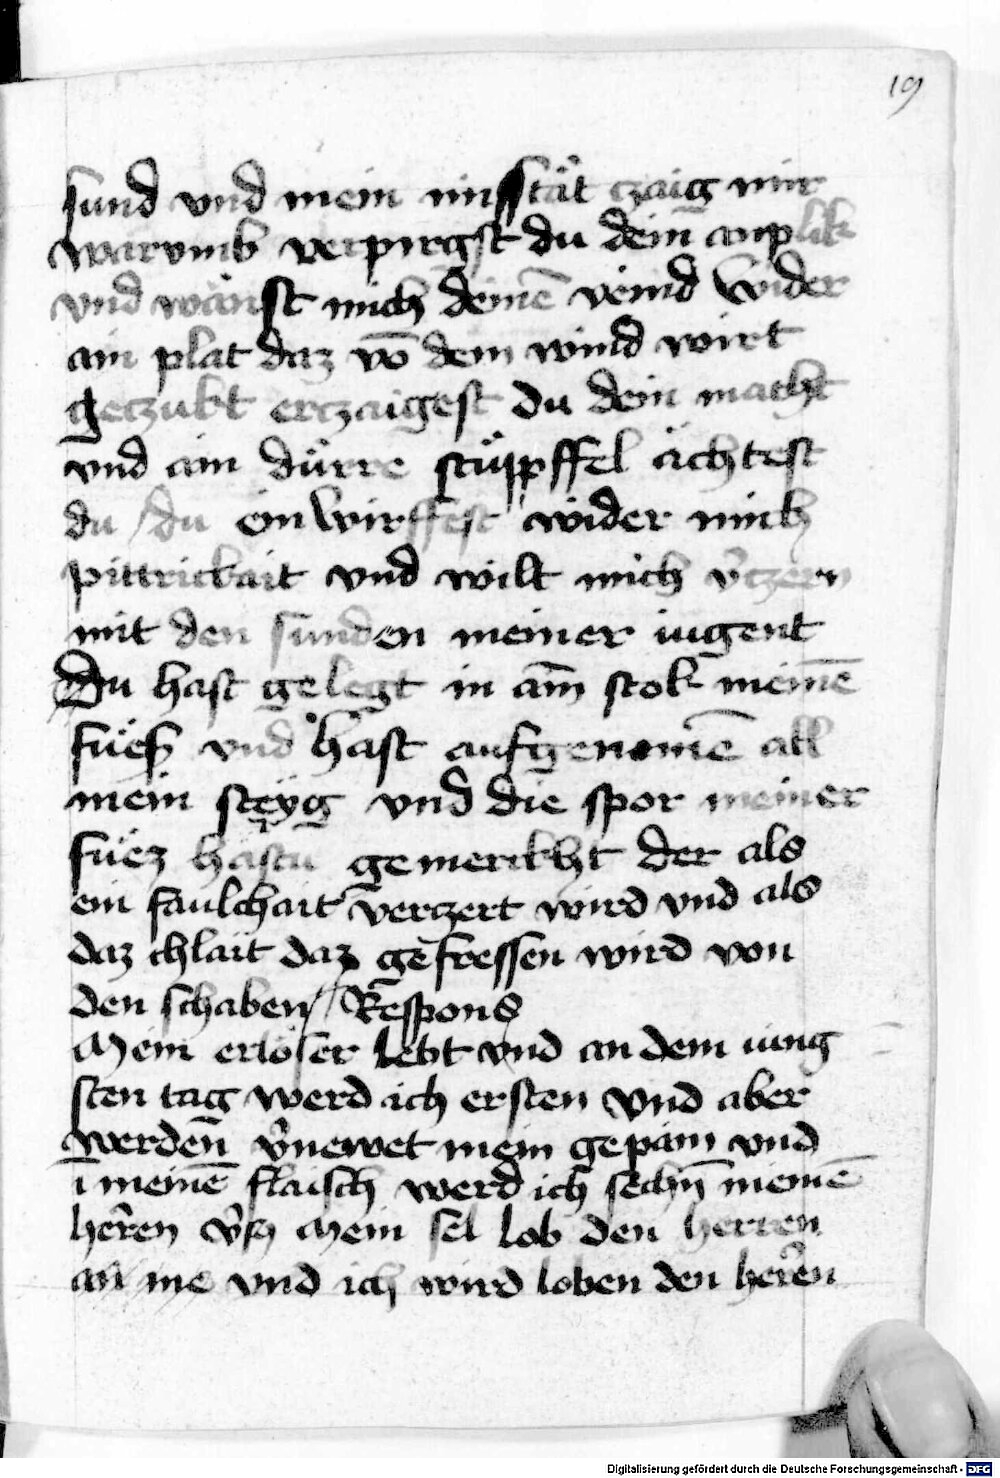 19
sund vnd mein misstät czaig mir
warvmb verpirgst du dein̄ anplik
vnd wänst mich deinē veind wider
ain plat daz vō dem wind wirt
geczukt erczaigest du dein macht
vnd ain dürre stüppffel ächtest
du / du einwirffest wider mich
pittrickait vnd wilt mich v̂czern
mit den sunden meiner iugent
Du hast gelegt in aīn stok meinē
füeß vnd hast aufgenomē all
mein steyg vnd die spor meiner
füez hastu gemerckht der als
ein faulchait verczert wird vnd als
daz chlait daz gefressen wird von
den schaben // Respons
Mein erlöser lebt vnd an dem iung
sten tag werd ich ersten vnd aber
werden̄ v̂newet mein gepain vnd
ī meinē flaisch werd ich sechn̄ meinē
herren v̂s Mein sel lob den herren
an me vnd ich wird loben den herren
Digitalisierung gefördert durch die Deutsche Forschungsgemeinschaft - DFG